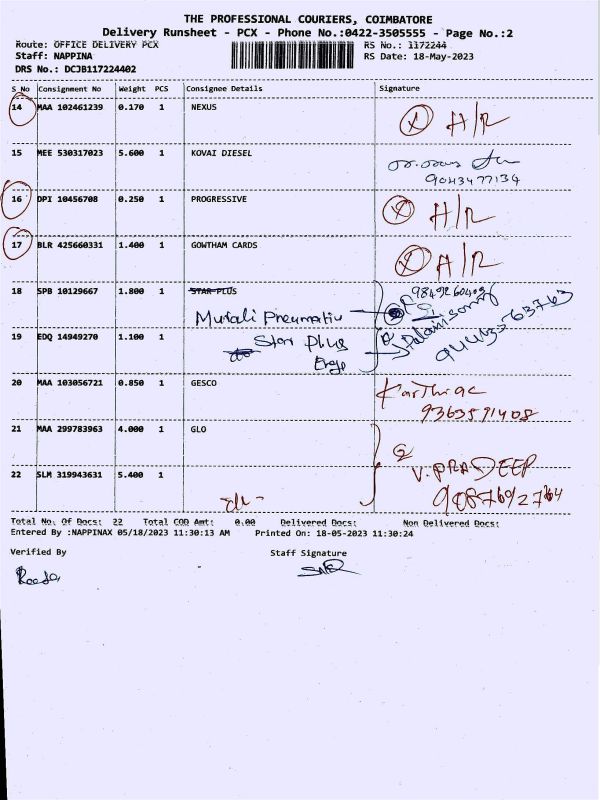 THE PROFESSIONAL COURIERS, COIMBATORE
Delivery Runsheet - PCX - Phone No.:0422-3505555 - Page No.:2
Route: OFFICE DELIVERY PCX RS No.: 1172244
Staff: NAPPINA RS Date: 18-May-2023
DRS No.: DCJB117224402
S No Consignment No Weight PCS Consignee Details Signature
14 MAA 102461239 0.170 1 NEXUS X A/R
15 MEE 530317023 5.600 1 KOVAI DIESEL
9043477134
16 DPI 10456708 0.250 1 PROGRESSIVE X A/R
17 BLR 425660331 1.400 1 GOWTHAM CARDS X A/R
18 SPB 10129667 1.800 1 STAR PLUS
Murali Pneumativ
19 EDQ 14949270 1.100 1 Star Plus
20 MAA 103056721 0.850 1 GESCO Karthic
9363591408
21 MAA 299783963 4.000 1 GLO
V. PRADEEP
22 SLM 319943631 5.400 1
Total No. Of Docs: 22 Total COD Amt: 0.00 Delivered Docs: Non Delivered Docs:
Entered By :NAPPINAX 05/18/2023 11:30:13 AM Printed On: 18-05-2023 11:30:24
Verified By Staff Signature